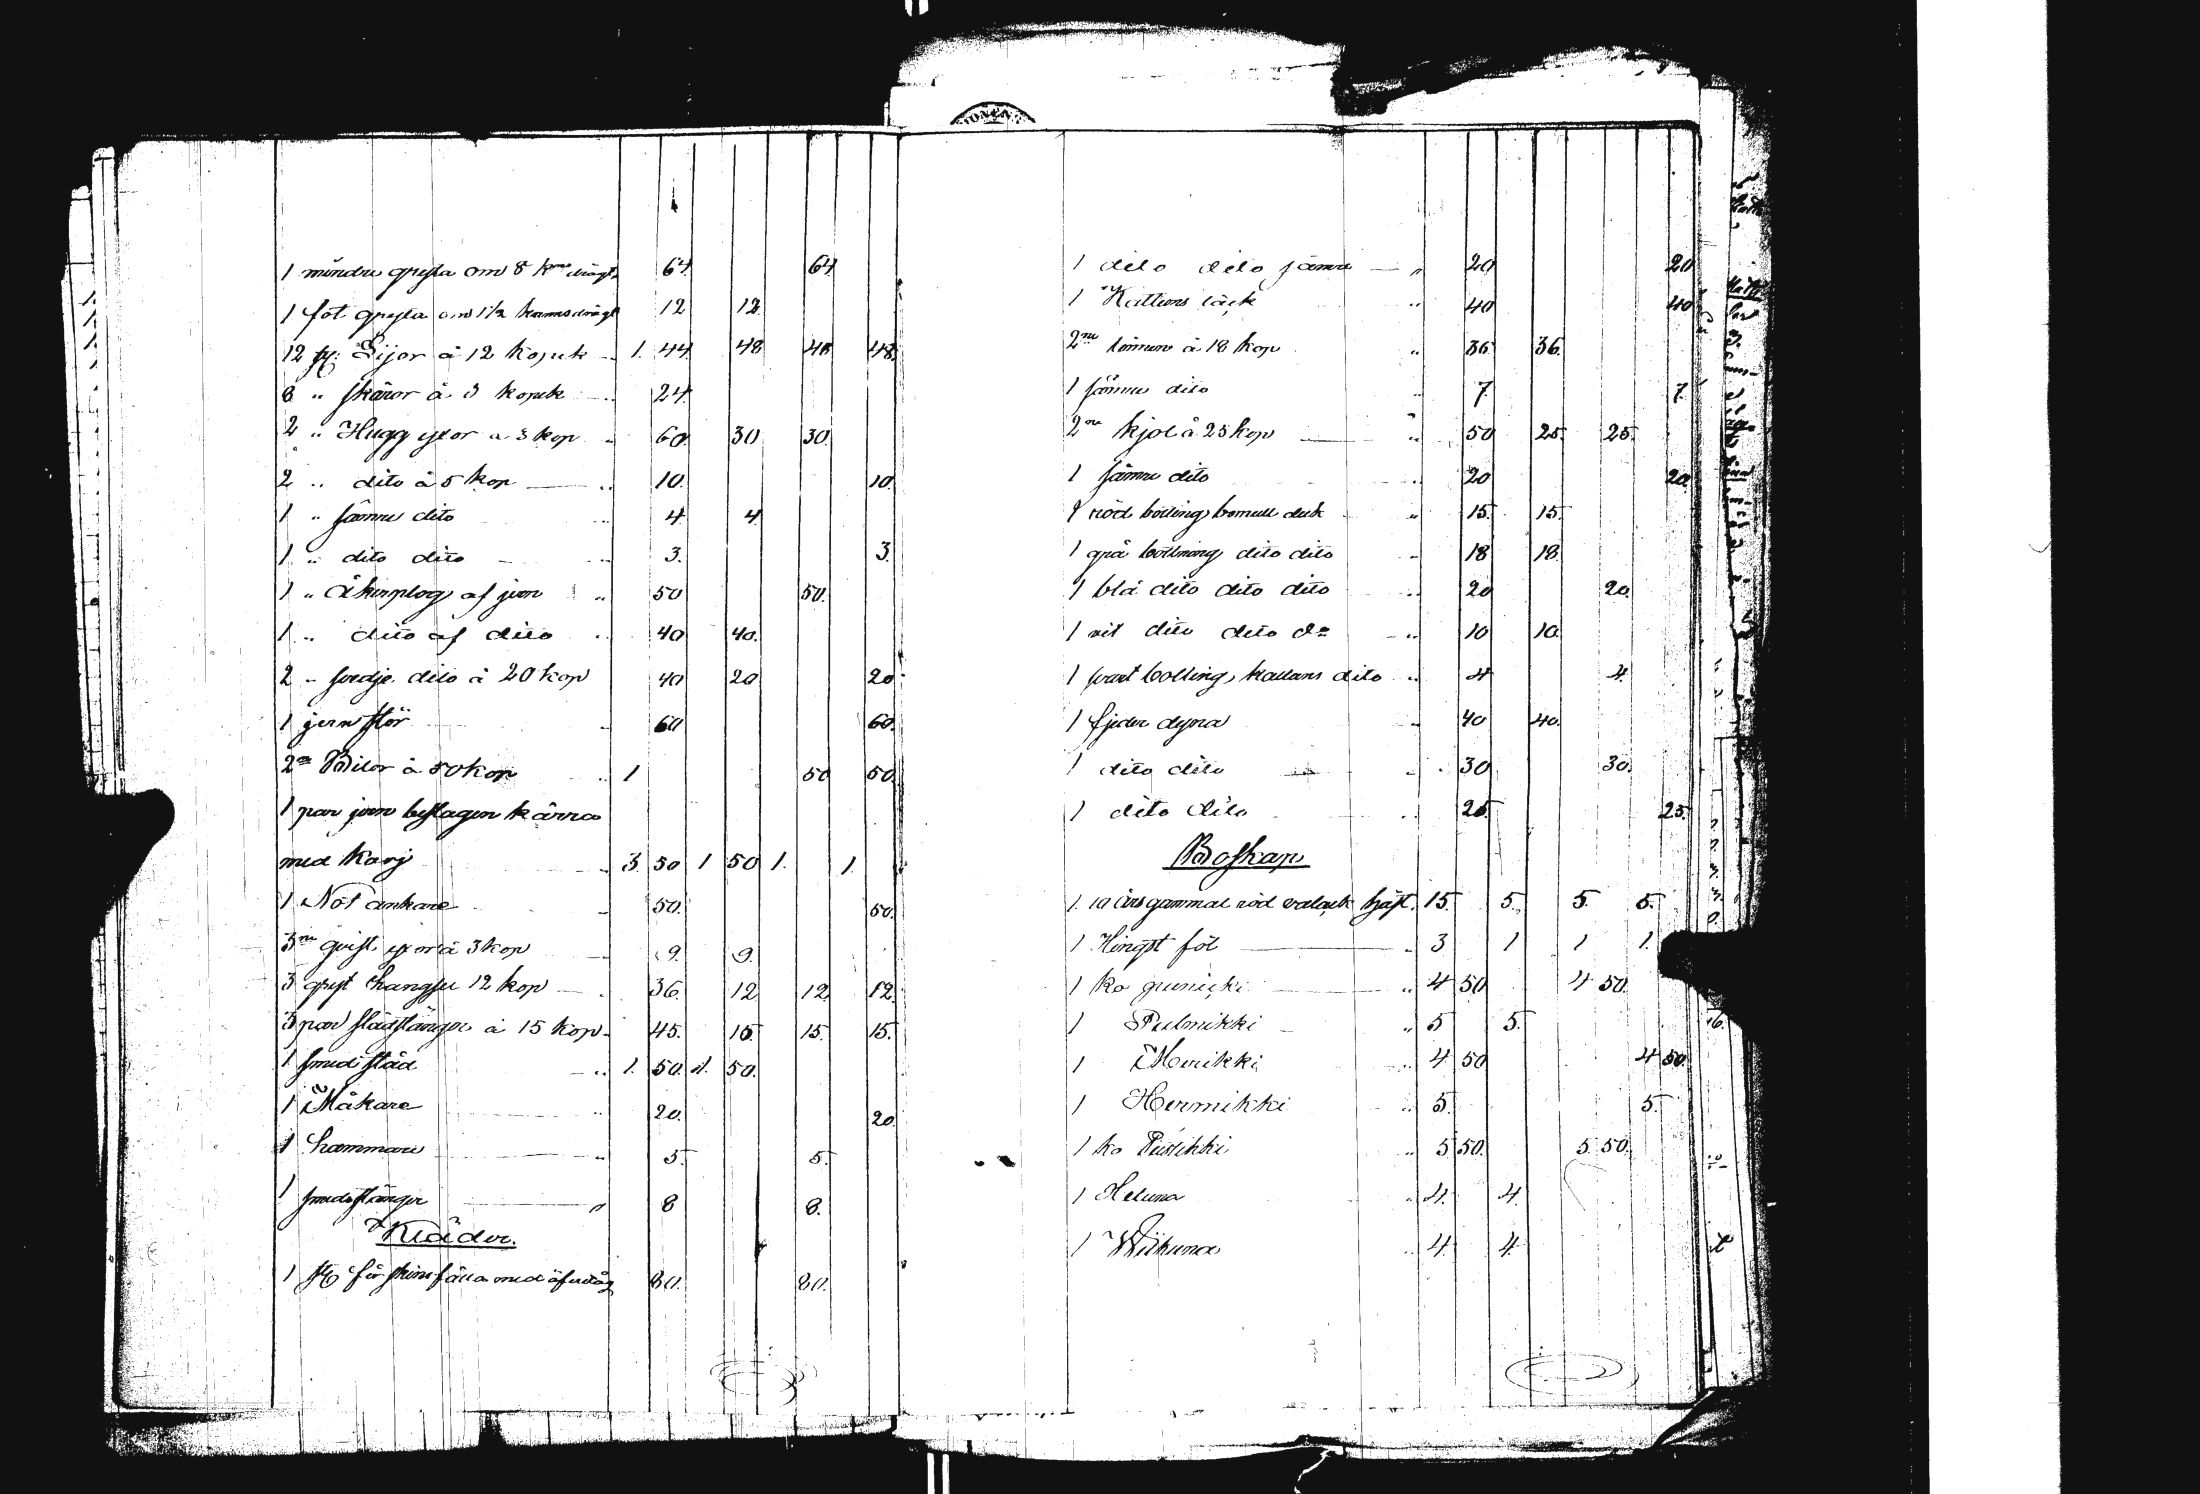 1 mindre gryta om 8 k:ns drägt 64 64
1 fot gryta om 1 1/2 kannsdrägt 12 12
12 st: Lijor à 12 kopek 1. 44 48 48 48
8 " skäror à 3 kopek 24
2 " Hugg yxor à 3 kop 60 30 30
2 " dito à 5 kop 10 10
1 " sämre dito 4 4
1 " dito dito 3. 3.
1 " Åkerplog af jern 50 50
1 " dito af dito 40 40.
2 " svedje dito à 20 kop 40 20 20
1 jern stör 60 60
2ne Bilor à 50 kop 1 50 50
1 par jern beslagen kärra
med korj 3 50 1 50 1. 1.
1 Not ankare 50. 50
3ne qvist yxor à 3 kop 9. 9.
3 gryt hängsle 12 kop 36 12 12 12
3 par à 15 kop 45. 15 15. 15.
1 smed städ 1. 50. 1. 50.
1 Måkare 20. 20
1 hammare 5. 5.
1 smedstänger 8 8.
Kläder.
1 st får skins fäll med 80. 80.
1 dito dito sämre 20 20
1 Kattuns täck 40 40
2ne à 18 kop 36 36.
1 sämre dito 7. 7.
2ne kjol à 25 kop 50 25 25.
1 sämre dito 20 20
1 röd bolling bomull duk 15. 15.
1 grå bottning dito dito 18 18
1 blå dito dito dito 20 20.
1 vit dito dito do 10 10.
1 svart bolling kattuns dito 4 4.
1 fjeder dyna 40 40.
1 dito dito 30 30.
1 dito dito 25 25.
Boskap
1. 10 års gammal röd valack häst. 15. 5. 5. 5.
1 Hingst föl 3 1 1 1.
1 ko 4 50 4 50.
1 Pulmikki 5 5.
1 Merikki 4 50 4 50.
1 Hermikki 5. 5.
1 ko 5 50. 5 50.
1 Heluna 4. 4.
1 Wiikuna 4. 4.